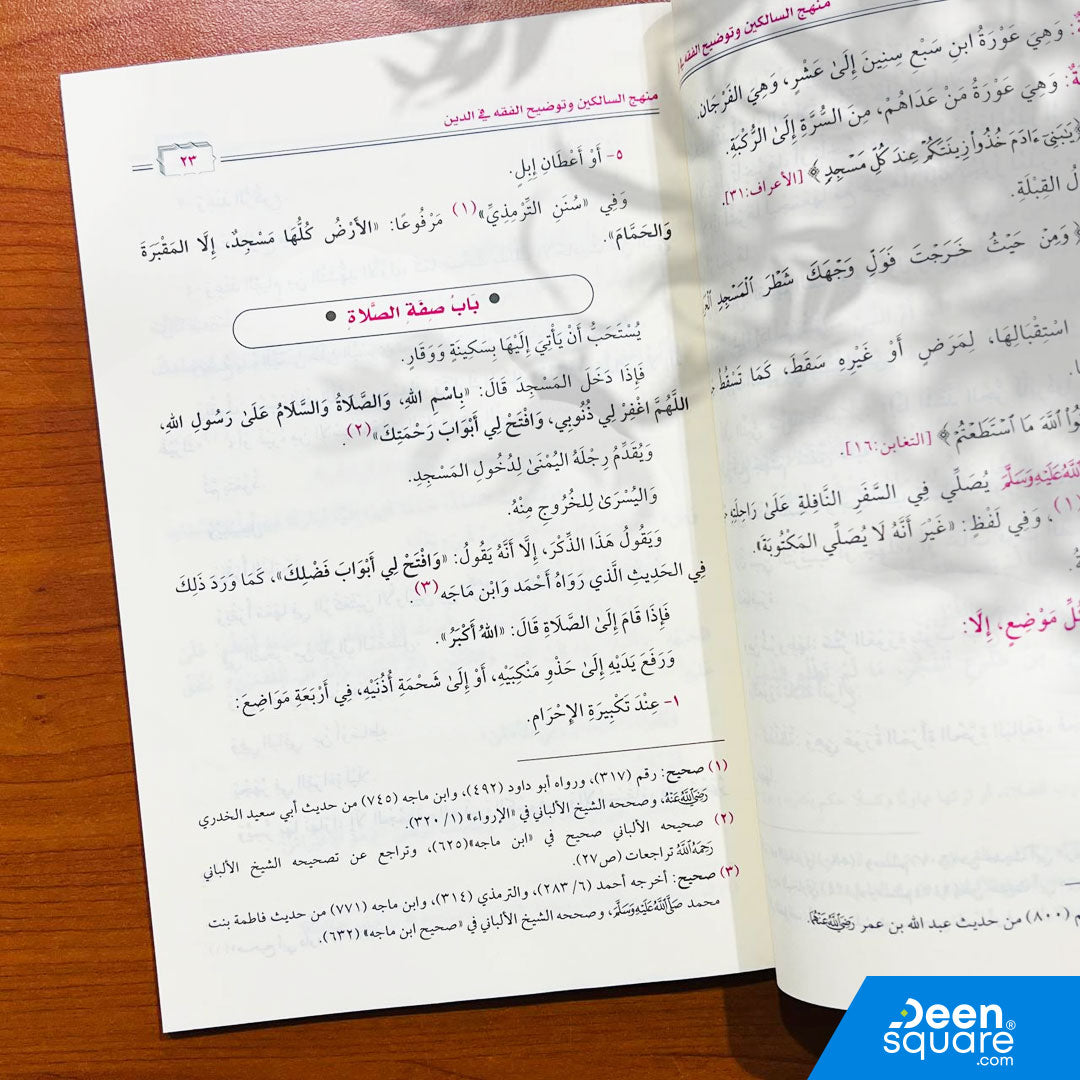 منهج السالكين وتوضيح الفقه في
وَهِيَ عَوْرَةُ ابنِ سَبْعِ سِنِينَ إِلَىٰ عَشْرٍ، وَهِيَ الفَرْجَان.
وَهِيَ عَوْرَةُ مَنْ عَدَاهُمْ، مِنَ السُّرَّةِ إِلَىٰ الرُّكْبَةِ.
﴿يَٰبَنِيٓ ءَادَمَ خُذُواْ زِينَتَكُمْ عِندَ كُلِّ مَسْجِدٍ﴾ [الأعراف:٣١].
القِبْلَةِ.
وَمِنْ حَيْثُ خَرَجْتَ فَوَلِّ وَجْهَكَ شَطْرَ ٱلْمَسْجِدِ
اسْتِقْبَالِهَا، لِمَرَضٍ أَوْ غَيْرِهِ سَقَطَ، كَمَا تَسْقُطُ
ٱللَّهَ مَا ٱسْتَطَعْتُمْ﴾ [التغابن:١٦].
يُصَلِّي فِي السَّفَرِ النَّافِلَةِ عَلَىٰ رَاحِلَتِهِ
(١)، وَفِي لَفْظٍ: «غَيْرَ أَنَّهُ لَا يُصَلِّي المَكْتُوبَةَ».
مَوْضِعٍ، إِلَّا:
(٨٠٠) من حديث عبد الله بن عمر رَضِيَ اللَّهُ عَنْهُمَا.
منهج السالكين وتوضيح الفقه في الدين
٢٣
٥- أَوْ أَعْطَانِ إِبِلٍ.
وَفِي «سُنَنِ التِّرْمِذِيِّ»(١) مَرْفُوعًا: «الأَرْضُ كُلُّهَا مَسْجِدٌ، إِلَّا المَقْبَرَةَ
وَالحَمَّامَ».
بَابُ صِفَةِ الصَّلَاةِ
يُسْتَحَبُّ أَنْ يَأْتِيَ إِلَيْهَا بِسَكِينَةٍ وَوَقَارٍ.
فَإِذَا دَخَلَ المَسْجِدَ قَالَ: «بِاسْمِ اللهِ، وَالصَّلَاةُ وَالسَّلَامُ عَلَىٰ رَسُولِ اللهِ،
اللَّهُمَّ اغْفِرْ لِي ذُنُوبِي، وَافْتَحْ لِي أَبْوَابَ رَحْمَتِكَ»(٢).
وَيُقَدِّمُ رِجْلَهُ اليُمْنَىٰ لِدُخُولِ المَسْجِدِ.
وَاليُسْرَىٰ لِلْخُرُوجِ مِنْهُ.
وَيَقُولُ هَذَا الذِّكْرَ، إِلَّا أَنَّهُ يَقُولُ: «وَافْتَحْ لِي أَبْوَابَ فَضْلِكَ»، كَمَا وَرَدَ ذَلِكَ
فِي الحَدِيثِ الَّذِي رَوَاهُ أَحْمَد وَابْن مَاجَه(٣).
فَإِذَا قَامَ إِلَىٰ الصَّلَاةِ قَالَ: «اللهُ أَكْبَرُ».
وَرَفَعَ يَدَيْهِ إِلَىٰ حَذْوِ مَنْكِبَيْهِ، أَوْ إِلَىٰ شَحْمَةِ أُذُنَيْهِ، فِي أَرْبَعَةِ مَوَاضِعَ:
١- عِنْدَ تَكْبِيرَةِ الإِحْرَامِ.
(١) صحيح: رقم (٣١٧)، ورواه أبو داود (٤٩٢)، وابن ماجه (٧٤٥) من حديث أبي سعيد الخدري
رَضِيَ اللَّهُ عَنْهُ، وصححه الشيخ الألباني في «الإرواء» (١/ ٣٢٠).
(٢) صحيحه الألباني صحيح في «ابن ماجه»(٦٢٥)، وتراجع عن تصحيحه الشيخ الألباني
رَحِمَهُ اللَّهُ تراجعات (ص٢٧).
(٣) صحيح: أخرجه أحمد (٦/ ٢٨٣)، والترمذي (٣١٤)، وابن ماجه (٧٧١) من حديث فاطمة بنت
محمد صَلَّى اللَّهُ عَلَيْهِ وَسَلَّمَ، وصححه الشيخ الألباني في «صحيح ابن ماجه» (٦٣٢).
Deen
square®
.com